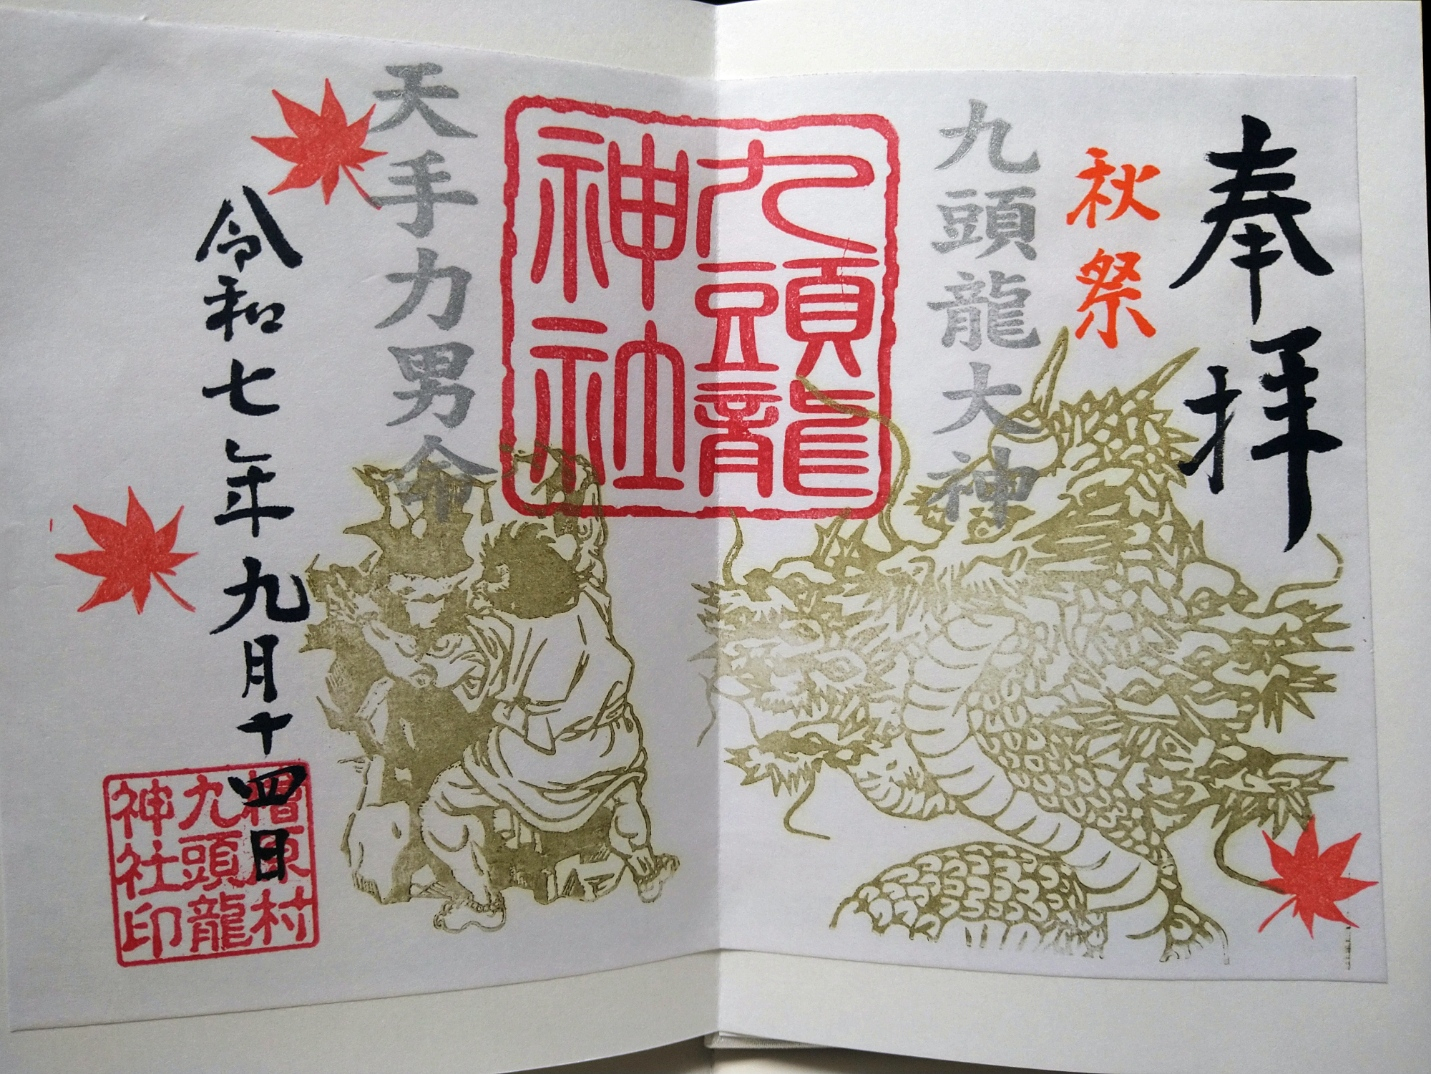 奉拝
秋祭
九頭龍大神
九頭龍
神社
天手力男命
令和七年九月十四日
檜原村
九頭龍
神社印